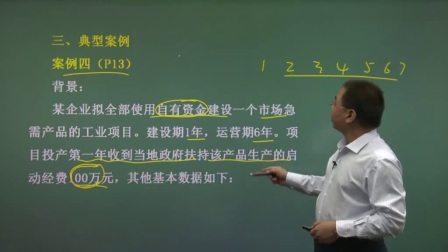 三、典型案例
案例四（P13） 1 2 3 4 5 6 7
背景：
某企业拟全部使用自有资金建设一个市场急
需产品的工业项目。建设期1年，运营期6年。项
目投产第一年收到当地政府扶持该产品生产的启
动经费100万元，其他基本数据如下：